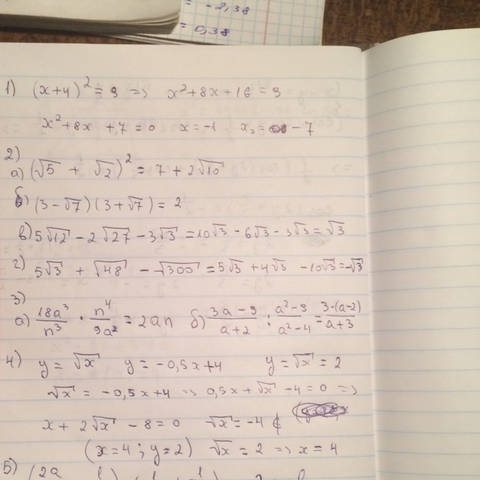 = -2,38
= 0,38
1) (x+4)² = 9 => x²+8x+16 = 9
x²+8x+7=0 x=-1 x₂= -7
2)
а) (√5 + √2)² = 7 + 2√10
б) (3-√7)(3+√7) = 2
в) 5√12 - 2√27 - 3√3 = 10√3 - 6√3 - 3√3 = √3
г) 5√3 + √48 - √300 = 5√3 + 4√3 - 10√3 = -√3
3)
а) 18a³/n³ · n⁴/9a² = 2an б) 3a-9/a+2 : a²-9/a²-4 = 3·(a-2)/a+3
4) y = √x y = -0,5x+4 y = √x = 2
√x = -0,5x+4 => 0,5x+√x -4=0 =>
x + 2√x - 8 = 0 √x = -4 ∉
(x=4; y=2) √x = 2 => x = 4
5) (2a